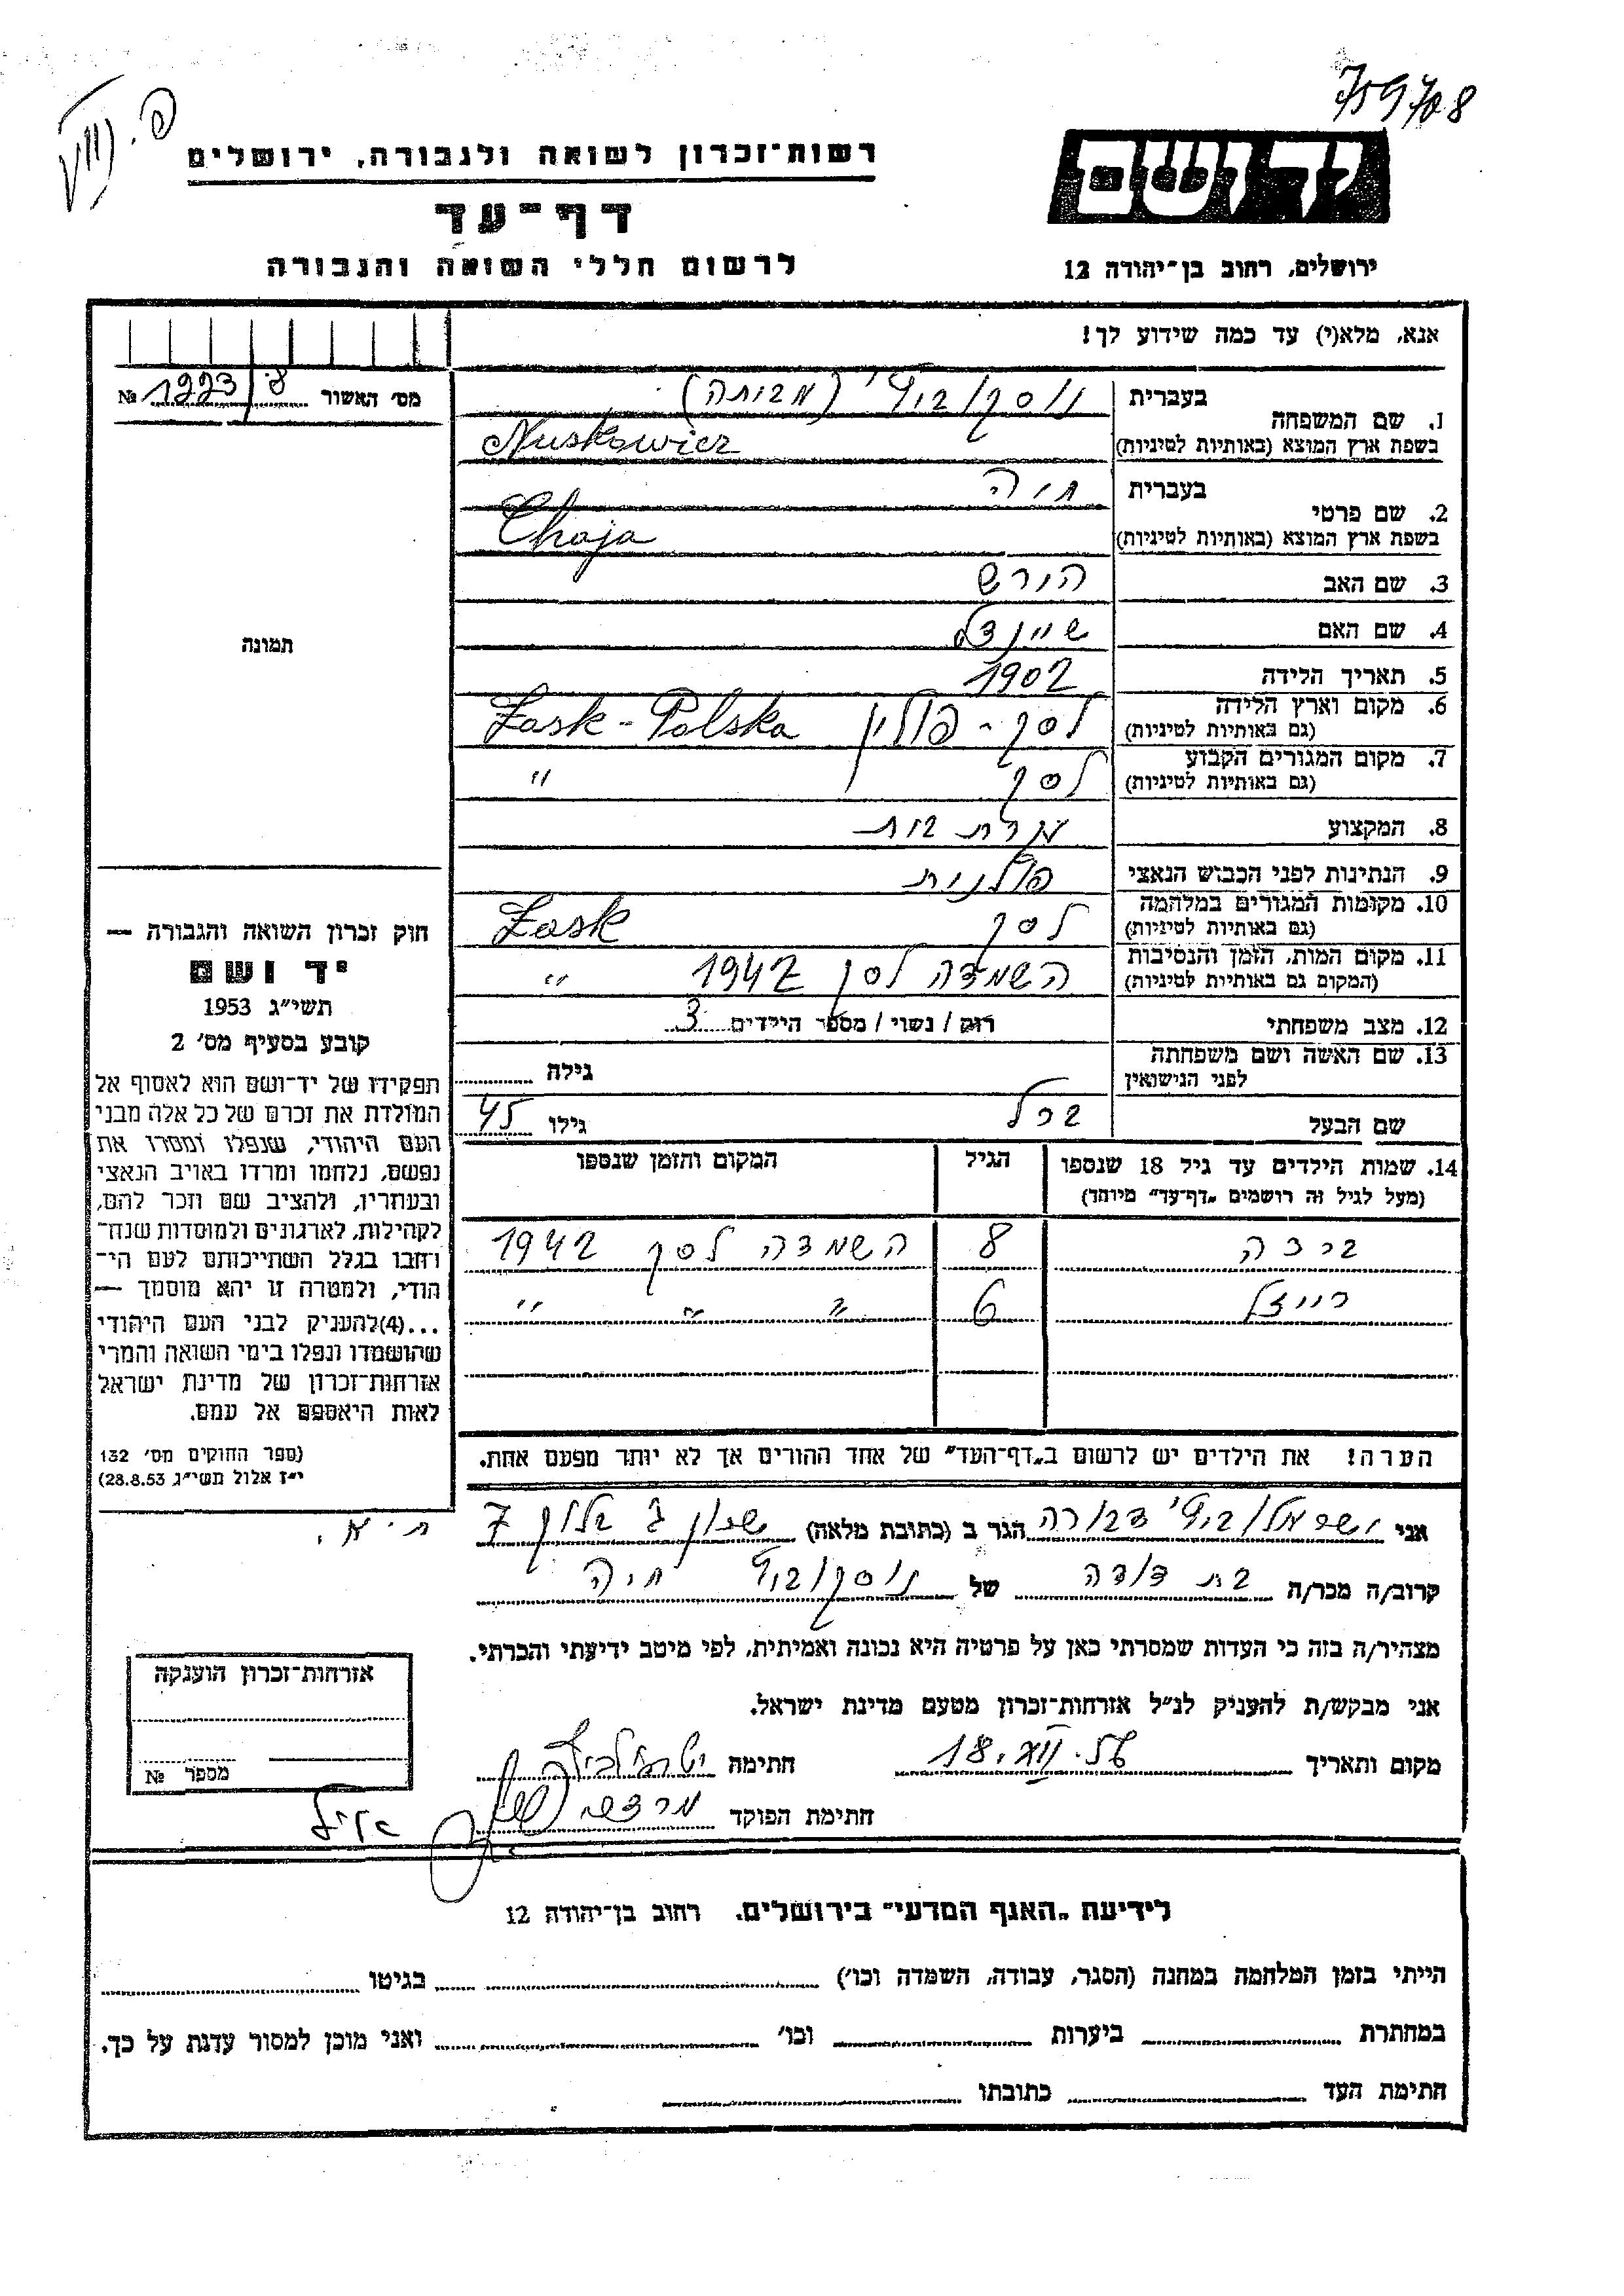 75978
יד ושם
רשות־זכרון לשואה ולגבורה, ירושלים
דף־עד
לרשום חללי השואה והגבורה
ירושלים, רחוב בן־יהודה 12
אנא, מלא(י) עד כמה שידוע לך!
מס׳ האשור № 1223/8
1. שם המשפחה
בעברית נוסקוביץ׳
בשפת ארץ המוצא (באותיות לטיניות) Nuskowicz
2. שם פרטי
בעברית חיה
בשפת ארץ המוצא (באותיות לטיניות) Chaja
3. שם האב הירש
4. שם האם שיינדל
5. תאריך הלידה 1902
6. מקום וארץ הלידה לסק - פולין Łask - Polska
(גם באותיות לטיניות)
7. מקום המגורים הקבוע לסק "
(גם באותיות לטיניות)
8. המקצוע עקרת בית
9. הנתינות לפני הכבוש הנאצי פולנית
10. מקומות המגורים במלחמה לסק Łask
(גם באותיות לטיניות)
11. מקום המות, הזמן והנסיבות השמדה לסק 1942 "
(המקום גם באותיות לטיניות)
12. מצב משפחתי רוק / נשוי / מספר הילדים 3
13. שם האשה ושם משפחתה גילה
לפני הנישואין
שם הבעל גילו 45
14. שמות הילדים עד גיל 18 שנספו הגיל המקום והזמן שנספו
(מעל לגיל זה רושמים „דף־עד" מיוחד)
8 השמדה לסק 1942
רייזל 6 " " "
הערה! את הילדים יש לרשום ב„דף־העד" של אחד ההורים אך לא יותר מפעם אחת.
תמונה
חוק זכרון השואה והגבורה —
יד ושם
תשי״ג 1953
קובע בסעיף מס׳ 2
תפקידו של יד־ושם הוא לאסוף אל
המולדת את זכרם של כל אלה מבני
העם היהודי, שנפלו ומסרו את
נפשם, נלחמו ומרדו באויב הנאצי
ובעוזריו, ולהציב שם וזכר להם,
לקהילות, לארגונים ולמוסדות שנח־
רחבו בגלל השתייכותם לעם הי־
הודי, ולמטרה זו יהא מוסמך —
...(4)להעניק לבני העם היהודי
שהושמדו ונפלו בימי השואה והמרי
אזרחות־זכרון של מדינת ישראל
לאות היאספם אל עמם.
(ספר החוקים מס׳ 132
י״ז אלול תשי״ג 28.8.53)
אני דבורה הגר ב (כתובת מלאה) שכון ג 7 ת.א.
קרוב/ה מכר/ה בת דודה של נוסקוביץ חיה
מצהיר/ה בזה כי העדות שמסרתי כאן על פרטיה היא נכונה ואמיתית, לפי מיטב ידיעתי והכרתי.
אני מבקש/ת להעניק לנ״ל אזרחות־זכרון מטעם מדינת ישראל.
מקום ותאריך חתימה
חתימת הפוקד
אזרחות־זכרון הוענקה
מספר №
לידיעת „האגף המדעי" בירושלים. רחוב בן־יהודה 12
הייתי בזמן המלחמה במחנה (הסגר, עבודה, השמדה וכו׳) בגיטו
במחתרת ביערות וכו׳ ואני מוכן למסור עדות על כך.
חתימת העד כתובתו